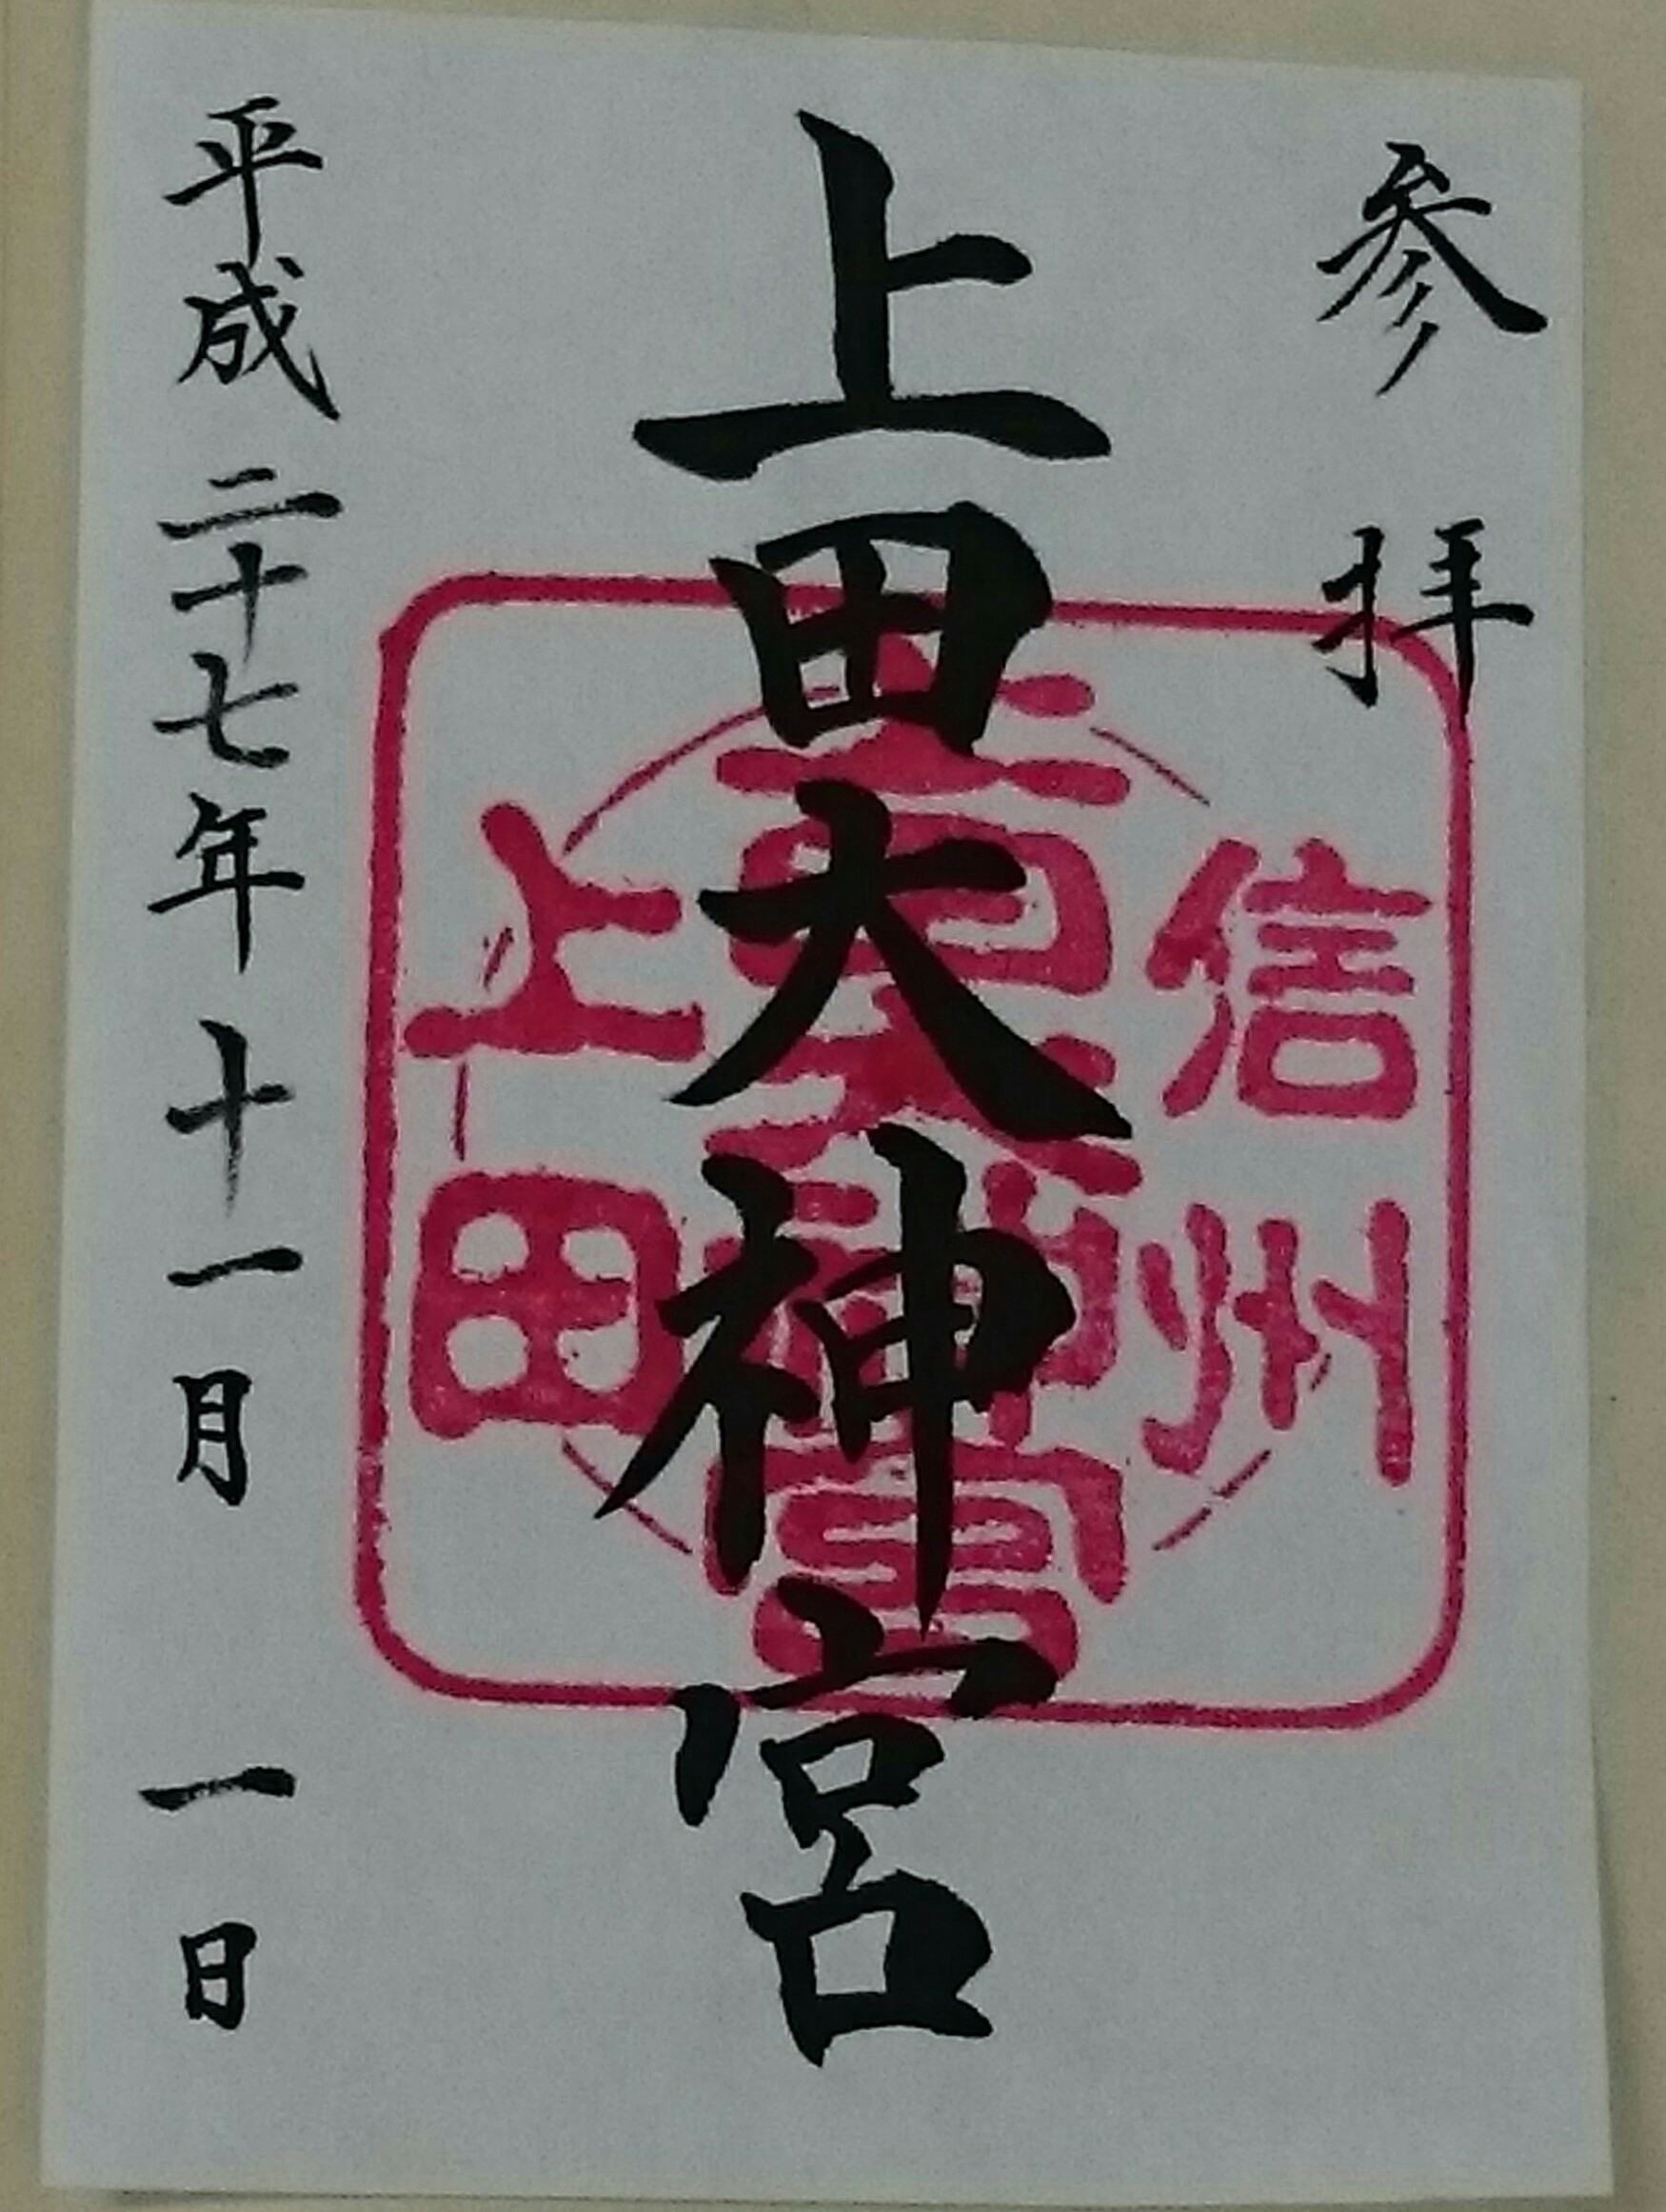 参拝
上田大神宮
平成二十七年十一月一日
信州
上田